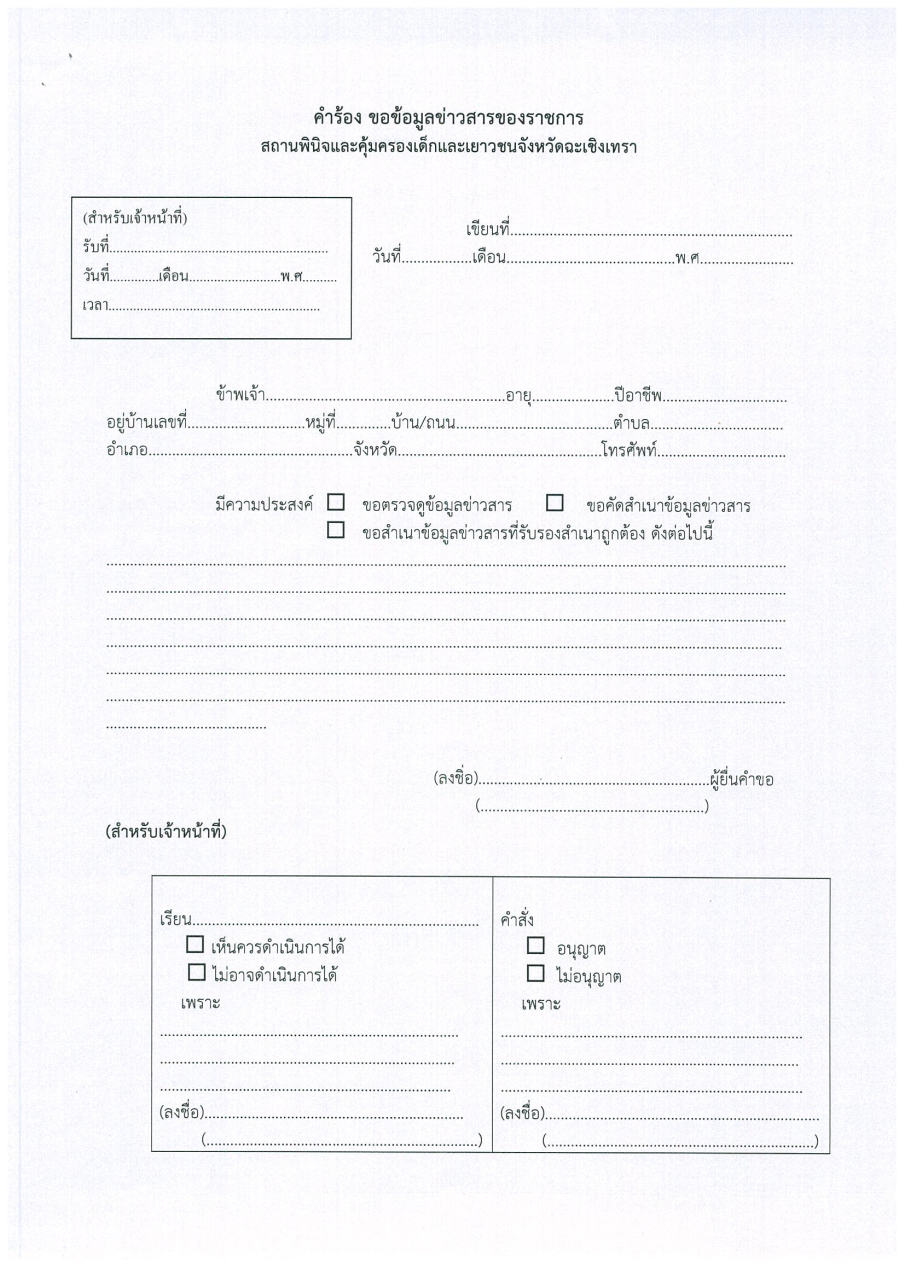 คำร้อง ขอข้อมูลข่าวสารของราชการ
สถานพินิจและคุ้มครองเด็กและเยาวชนจังหวัดฉะเชิงเทรา
(สำหรับเจ้าหน้าที่)
รับที่..........................................................
วันที่.............เดือน.........................พ.ศ..........
เวลา........................................................
เขียนที่...........................................................................
วันที่...................เดือน.............................................พ.ศ.........................
ข้าพเจ้า................................................................อายุ......................ปีอาชีพ.................................
อยู่บ้านเลขที่...............................หมู่ที่...............บ้าน/ถนน.........................................ตำบล...................................
อำเภอ......................................................จังหวัด......................................................โทรศัพท์..................................
มีความประสงค์ ☐ ขอตรวจดูข้อมูลข่าวสาร ☐ ขอคัดสำเนาข้อมูลข่าวสาร
☐ ขอสำเนาข้อมูลข่าวสารที่รับรองสำเนาถูกต้อง ดังต่อไปนี้
(ลงชื่อ).............................................................ผู้ยื่นคำขอ
(............................................................)
(สำหรับเจ้าหน้าที่)
เรียน............................................................................
☐ เห็นควรดำเนินการได้
☐ ไม่อาจดำเนินการได้
เพราะ
(ลงชื่อ).....................................................................
(........................................................................)
คำสั่ง
☐ อนุญาต
☐ ไม่อนุญาต
เพราะ
(ลงชื่อ).........................................................................
(.......................................................................)